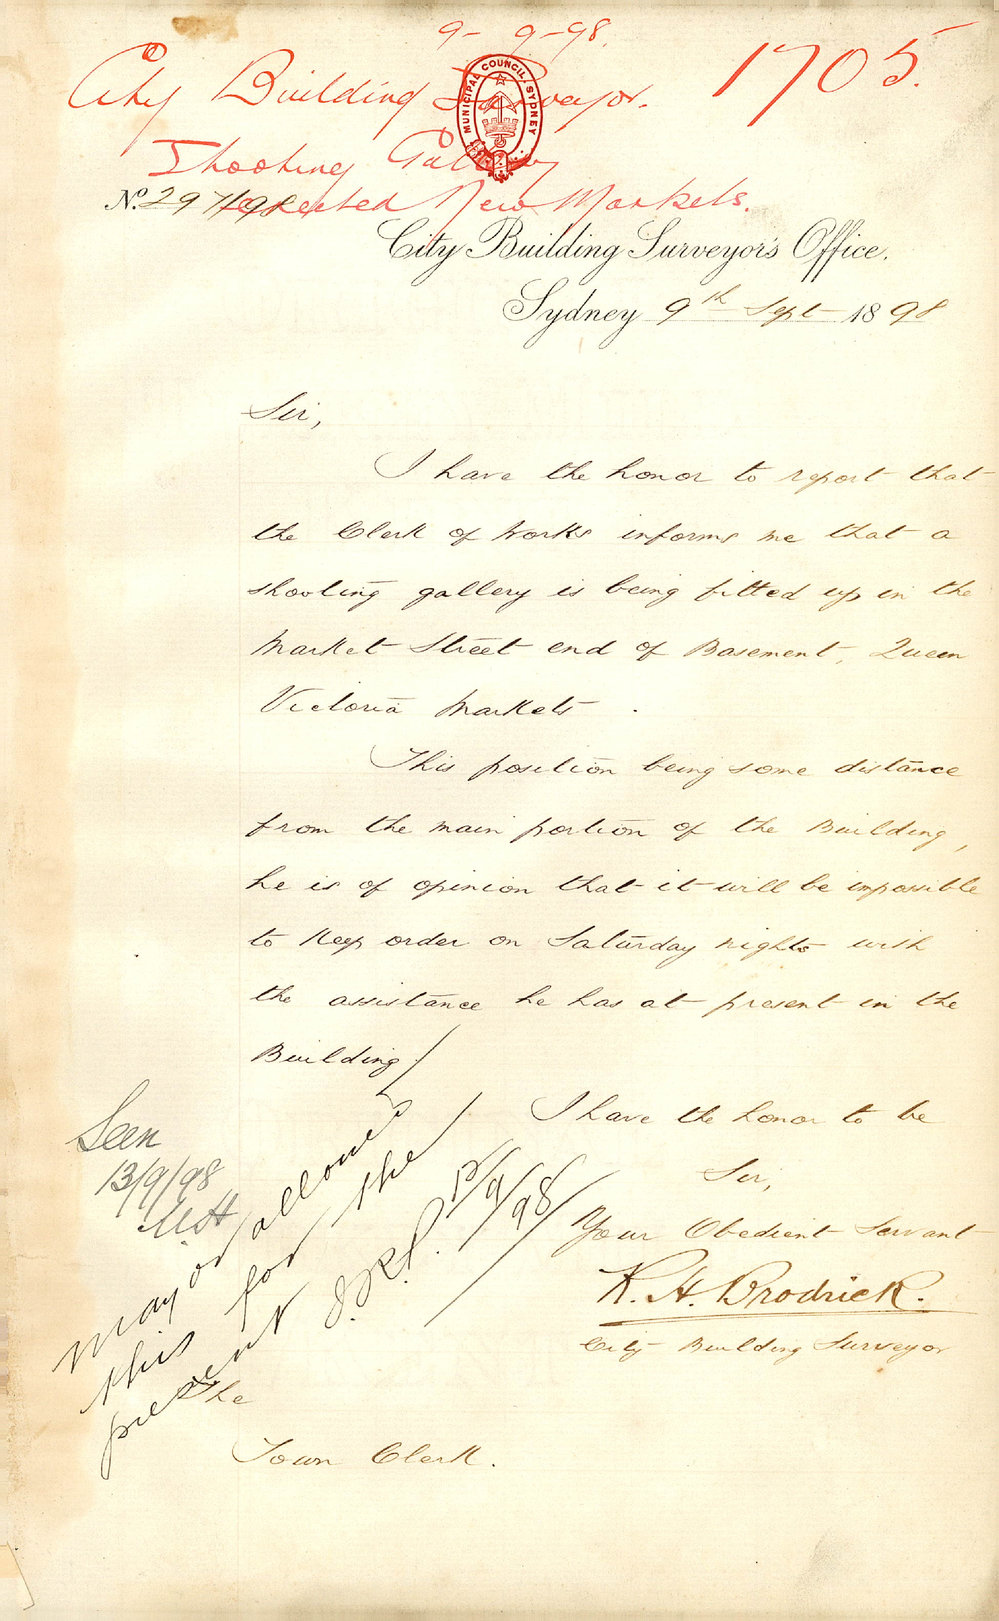 9-9-98.
City Building Surveyor. 1705.
MUNICIPAL COUNCIL, SYDNEY
Shooting Gallery
erected New Markets.
No. 297/98
City Building Surveyor's Office.
Sydney 9th Sept 1898
Sir,
I have the honor to report that
the Clerk of Works informs me that a
shooting gallery is being fitted up in the
Market Street end of Basement, Queen
Victoria Markets.
This position being some distance
from the main portion of the Building,
he is of opinion that it will be impossible
to keep order on Saturday nights with
the assistance he has at present in the
Building.
I have the honor to be
Sir,
Your Obedient Servant
R. H. Brodrick.
City Building Surveyor
The
Town Clerk.
Seen
13/9/98
Mayor allowed
this for the
present 12/9/98